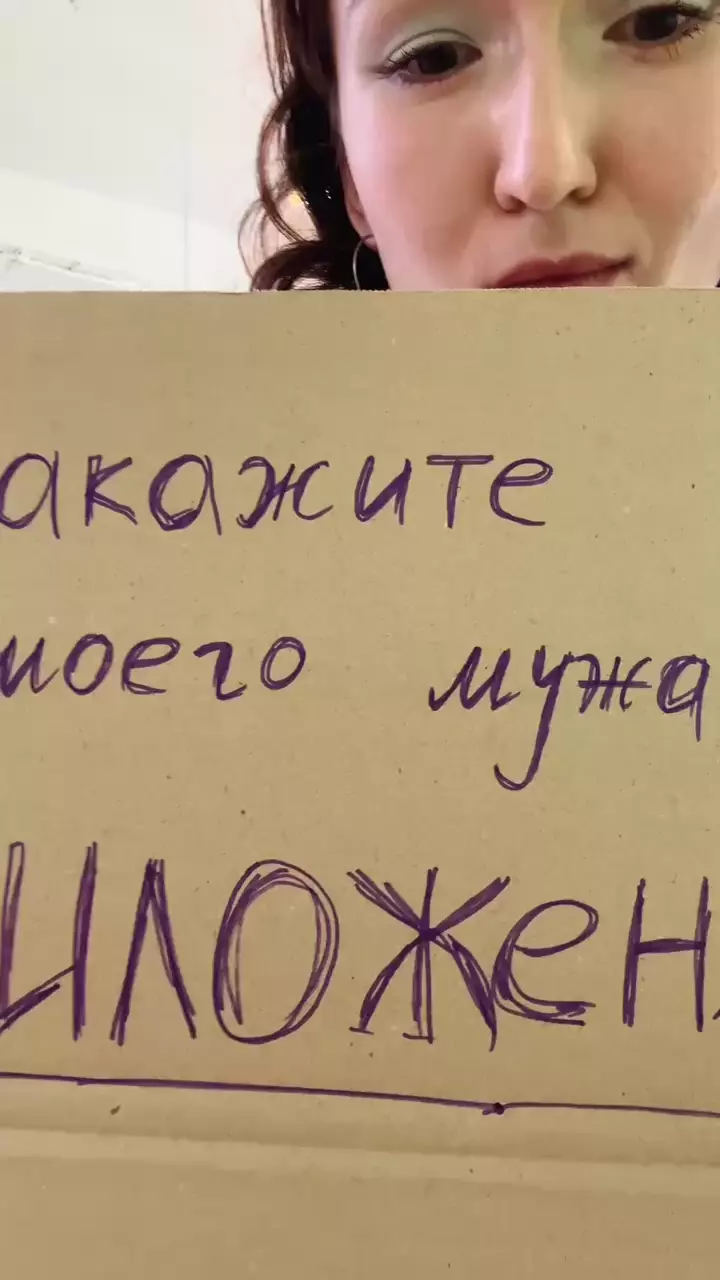 акажите
моего мужа
иложен